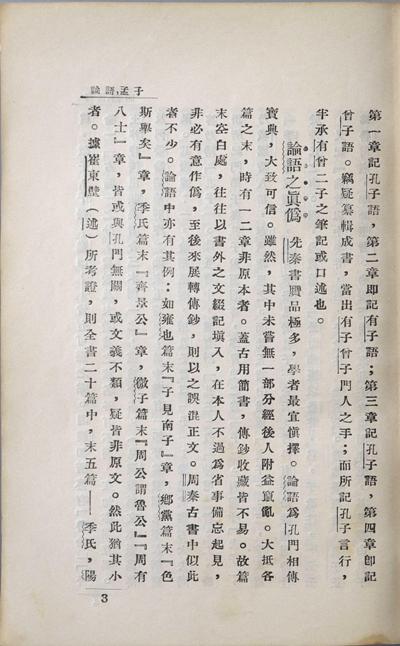 論語，孟子
第一章記孔子語，第二章即記有子語；第三章記孔子語，第四章即記
曾子語。竊疑纂輯成書，當出有子曾子門人之手；而所記孔子言行，
半承有曾二子之筆記或口述也。
論語之眞僞　先秦書贋品極多，學者最宜愼擇。論語爲孔門相傳
寶典，大致可信。雖然，其中未嘗無一部分經後人附益竄亂。大抵各
篇之末，時有一二章非原本者。蓋古用簡書，傳鈔收藏皆不易。故篇
末空白處，往往以書外之文綴記塡入，在本人不過爲省事備忘起見，
非必有意作僞，至後來展轉傳鈔，則以之誤混正文。周秦古書中似此
者不少。論語中亦有其例：如雍也篇末『子見南子』章，鄉黨篇末『色
斯舉矣』章，季氏篇末『齊景公』章，微子篇末『周公謂魯公』『周有
八士』章，皆或與孔門無關，或文義不類，疑皆非原文。然此猶其小
者。據崔東壁（述）所考證，則全書二十篇中，末五篇——季氏，陽
3